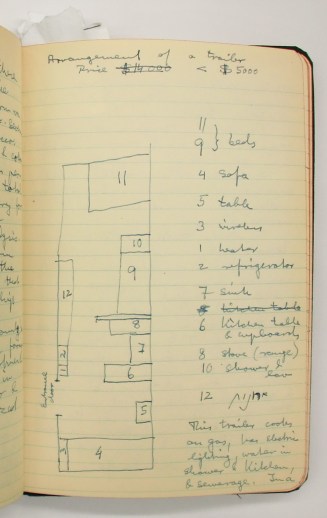 Arrangement of a trailer
Price $14000 < $5000
11
9 } beds
4 sofa
5 table
3 wireless
1 heater
2 refrigerator
7 sink
kitchen table
6 Kitchen table
& cupboards
8 stove (range)
10 shower &
lav
12
This trailer cooks
on gas, has electric
lighting, water in
shower & kitchen,
& sewerage. In a
11
10
9
12
8
7
2
1
6
Entrance
door
5
3
4